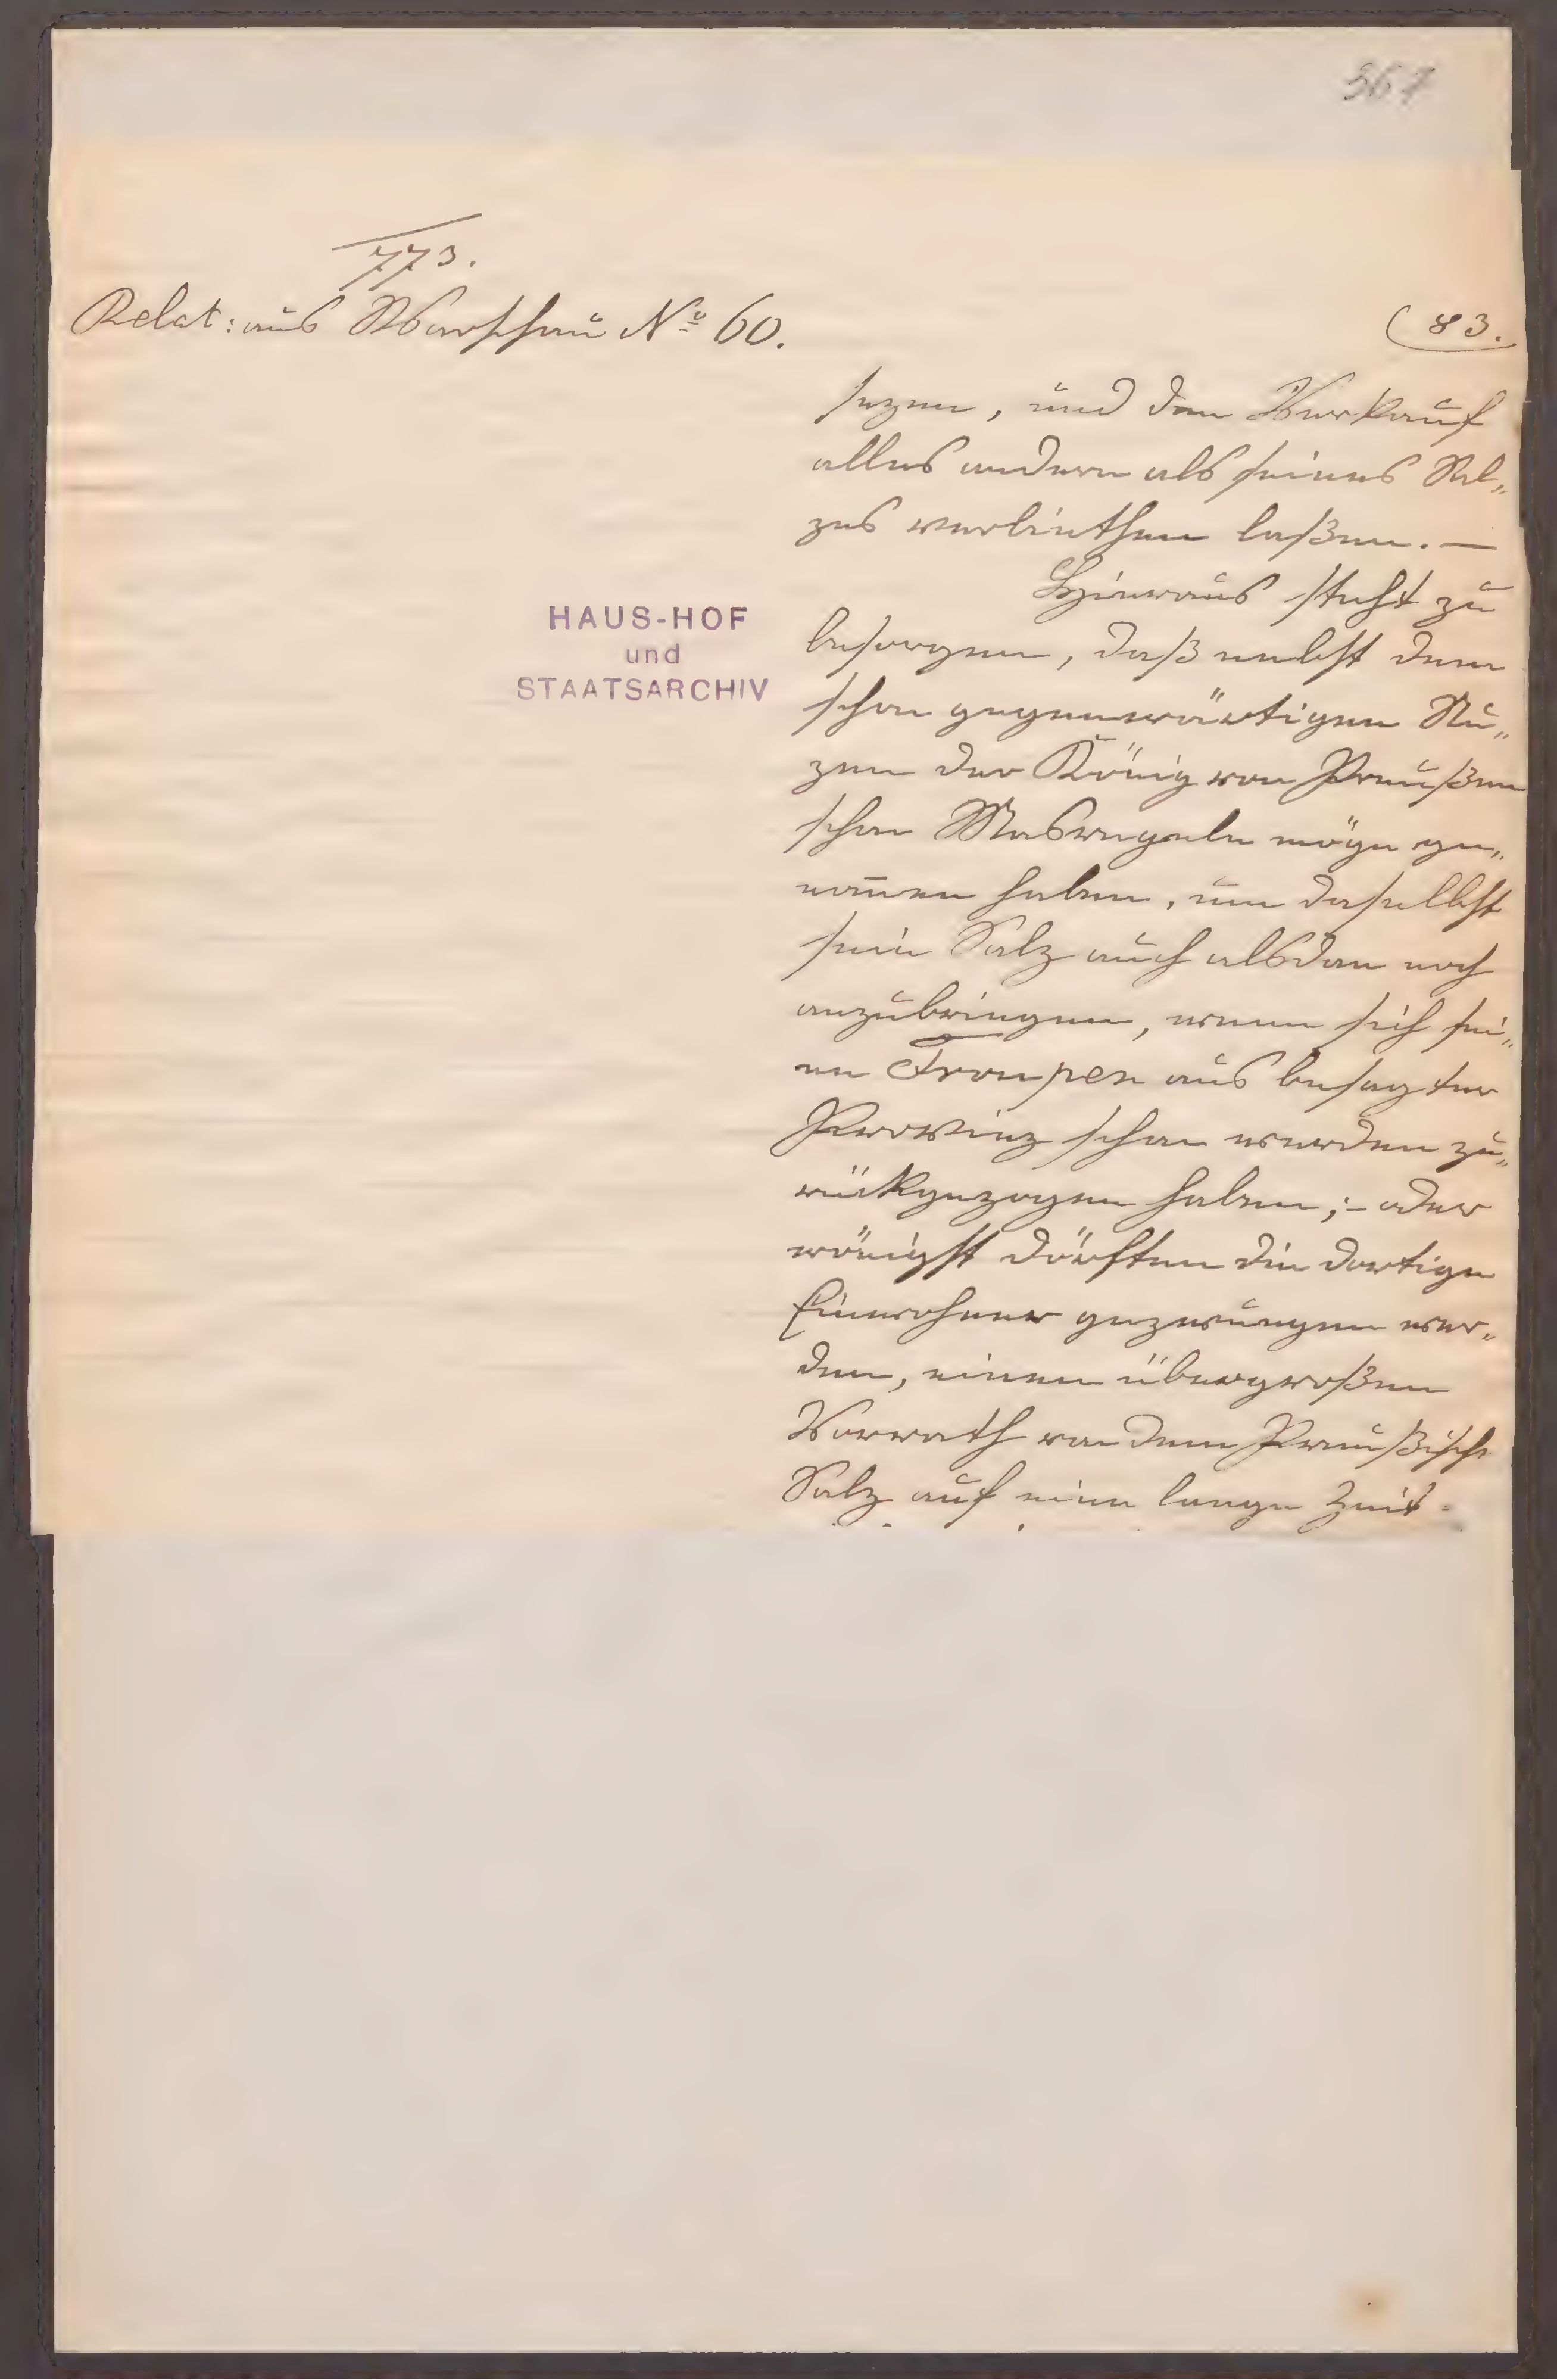 367
773.
Relat: aus Warschau Nº 60.
(83.
sezen, und den Verkauf
alles andern als seines Sal„
zes verbiethen laßen. —
Hieraus steht zu
besorgen, daß nebst dem
schon gegenwärtigen Nu„
zen der König von Preußen
schon Masregeln möge ge„
nom̅en haben, um daselbst
sein Salz auch alsdan noch
anzubringen, wenn sich sei„
ne Troupen aus besagter
Provinz schon werden zu„
rückgezogen haben; – oder
wönigst dörften die dortige
Einwohner gezwungen wer„
den, einen übergroßen
Vorrath von dem Preußische
Salz auf eine lange Zeit
HAUS-HOF
und
STAATSARCHIV